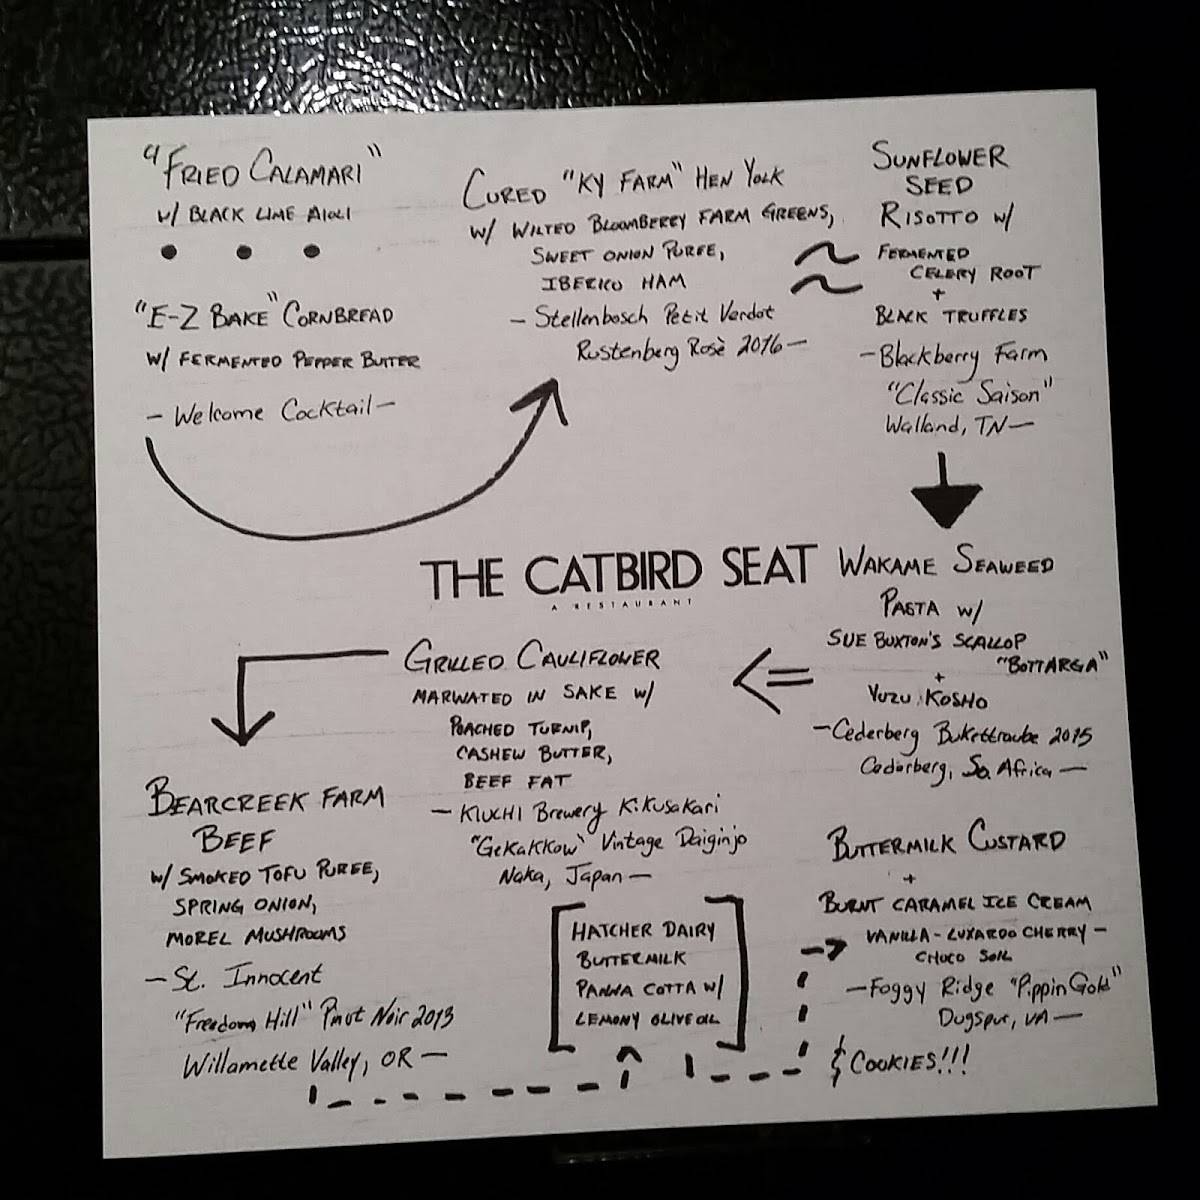 "FRIED CALAMARI"
W/ BLACK LIME AIOLI
"E-Z BAKE" CORNBREAD
W/ FERMENTED PEPPER BUTTER
- Welcome Cocktail -
CURED "KY FARM" HEN YOLK
W/ WILTED BLOOMBERRY FARM GREENS,
SWEET ONION PUREE,
IBERICO HAM
- Stellenbosch Petit Verdot
Rustenberg Rosè 2016 -
SUNFLOWER
SEED
RISOTTO W/
FERMENTED
CELERY ROOT
+
BLACK TRUFFLES
- Blackberry Farm
"Classic Saison"
Walland, TN -
THE CATBIRD SEAT
A RESTAURANT
WAKAME SEAWEED
PASTA W/
SUE BUXTON'S SCALLOP
"BOTTARGA"
+
YUZU KOSHO
- Cederberg Bukettraube 2015
Cederberg, So. Africa -
GRILLED CAULIFLOWER
MARINATED IN SAKE W/
POACHED TURNIP,
CASHEW BUTTER,
BEEF FAT
- KIUCHI Brewery Kikusakari
"Gekakkow" Vintage Daiginjo
Naka, Japan -
BEARCREEK FARM
BEEF
W/ SMOKED TOFU PUREE,
SPRING ONION,
MOREL MUSHROOMS
- St. Innocent
"Freedom Hill" Pinot Noir 2013
Willamette Valley, OR -
HATCHER DAIRY
BUTTERMILK
PANNA COTTA W/
LEMONY OLIVE OIL
BUTTERMILK CUSTARD
+
BURNT CARAMEL ICE CREAM
VANILLA - LUXARDO CHERRY -
CHOCO SOIL
- Foggy Ridge "Pippin Gold"
Dugspur, VA -
& COOKIES!!!